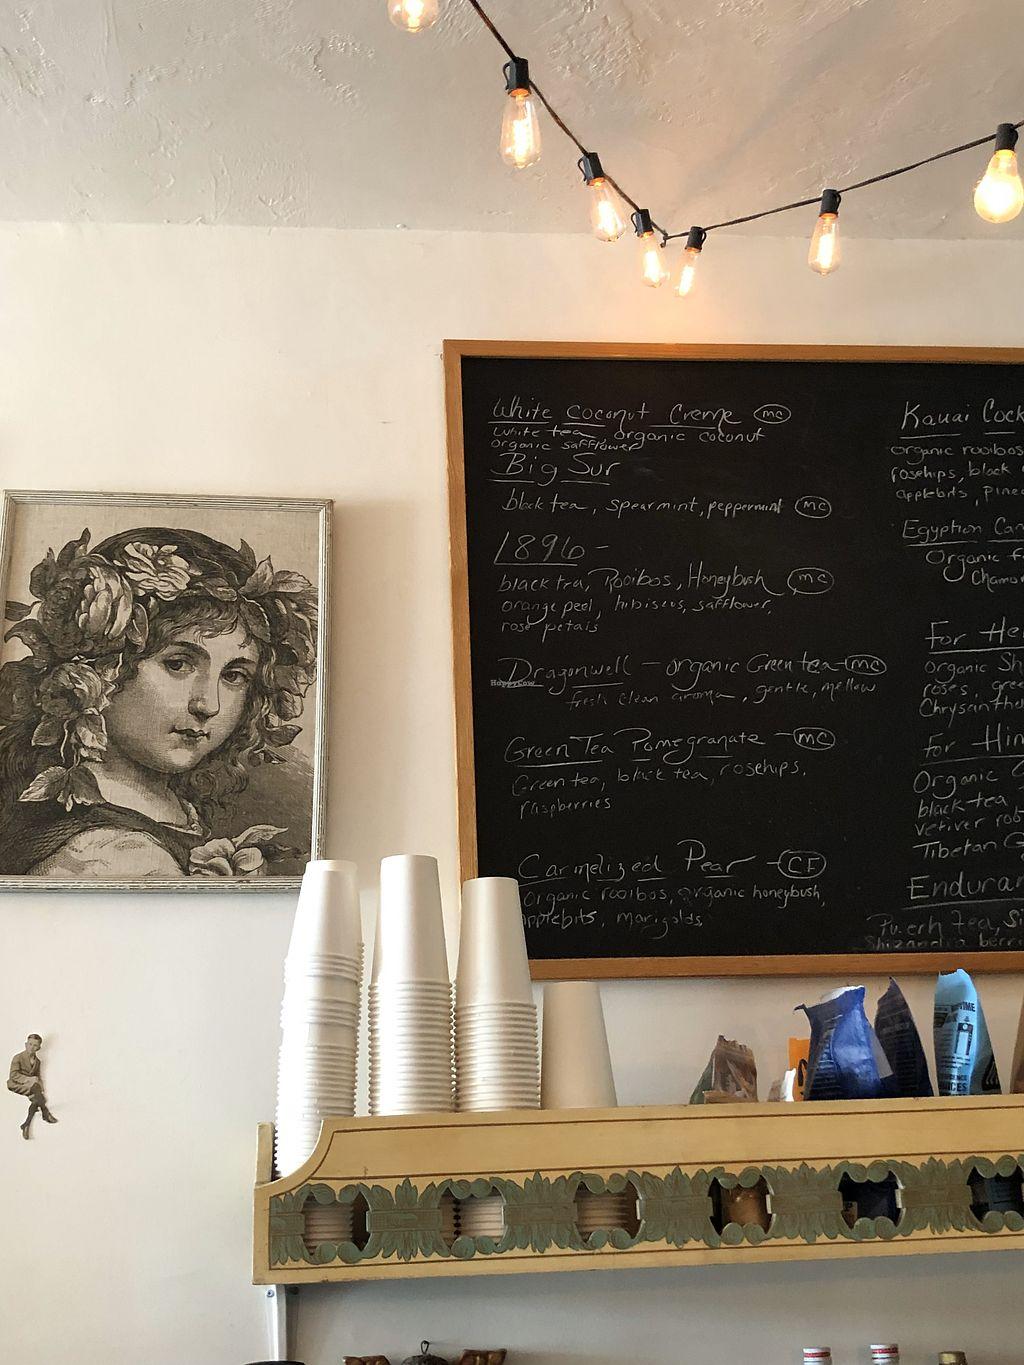 White Coconut Creme MC
White tea, organic coconut
organic safflower
Big Sur
black tea, spearmint, peppermint MC
1896 -
black tea, Rooibos, Honeybush MC
orange peel, hibiscus, safflower,
rose petals
Dragonwell - organic Green tea - MC
HappyCow
fresh clean aroma, gentle, mellow
Green Tea Pomegranate - MC
Green tea, black tea, rosehips,
raspberries
Carmelized Pear - CF
organic rooibos, organic honeybush,
applebits, marigolds
Kauai Cock
organic rooibos
rosehips, black
applebits, pine
Egyption Cam
Organic f
Chamom
For He
organic Sh
roses, gree
Chrysanthe
For Him
Organic
black tea
vetiver roo
Tibetan G
Enduran
Pu.erh tea, Si
Shizandra berri